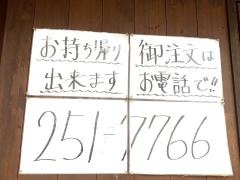 お持ち帰り
出来ます
御注文は
お電話で!!
251-7766